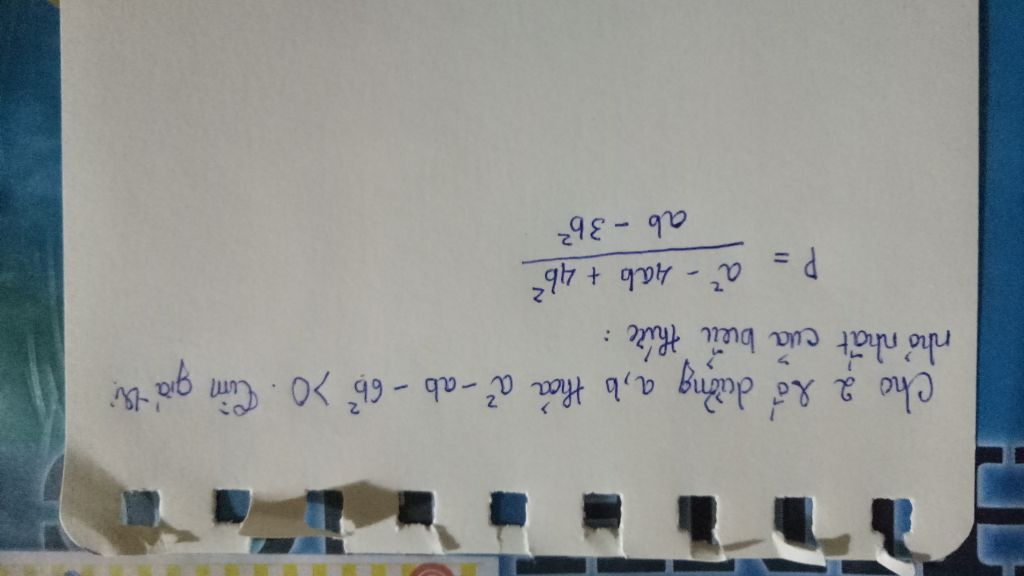 Cho 2 số dương a, b thoả a² - ab - 6b² > 0. Tìm giá trị
nhỏ nhất của biểu thức:
P = \frac{a² - 4ab + 4b²}{ab - 3b²}